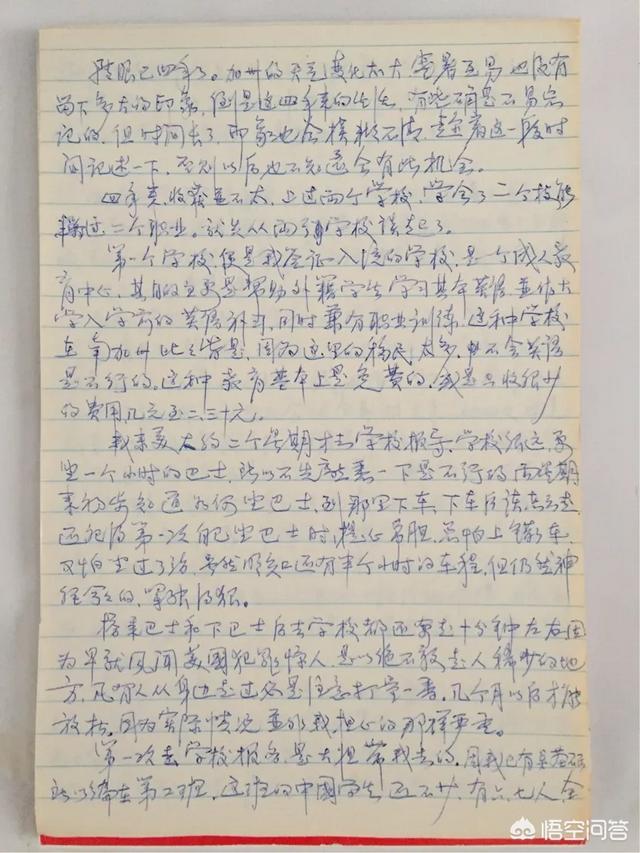 转眼已四年了。加州的天气变化不大,寒暑互易也没有
留下多大的印象,但是这四年来的生活,有些确是不易忘
记的,但时间长了,印象也会模糊不清,趁着这一段时
间记述一下,否则以后也不知还会有此机会。
四年来,收获并不大,上过两个学校,学会了二个技能
二个职业。就先从两个学校谈起了。
第一个学校便是我签证入境的学校,是一个成人教
育中心,其目的主要是帮助外籍学生学习基本英语,并作大
学入学前的英语补习,同时兼有职业训练,这种学校
在南加州比比皆是,因为这里的移民太多,不会英语
是不行的,这种教育基本上是免费的,或是只收很少
的费用几元至二、三十元。
我来美大约二个星期才去学校报导,学校很远,要
坐一个小时的巴士,所以不先熟悉一下是不行的
来初步知道如何坐巴士,到那里下车,下车后该怎么走,
还记得第一次自己坐巴士时,提心吊胆,只怕上错了车,
又怕坐过了站,虽然明知还有半个小时的车程,但仍然神
经的,紧张得很。
搭乘巴士和下巴士后去学校都还要走十分钟左右,因
为早就风闻美国犯罪惊人,是以绝不敢走人稀少的地
方,凡有人从身边走过必是注意打量一番,几个月以后才能
放松。因为实际情况并非我担心的那样严重。
第一次去学校报名是大姐带我去的,因我已有英语基础
所以编在第二班,这班的中国学生还不少,有六、七人,全
悟空问答